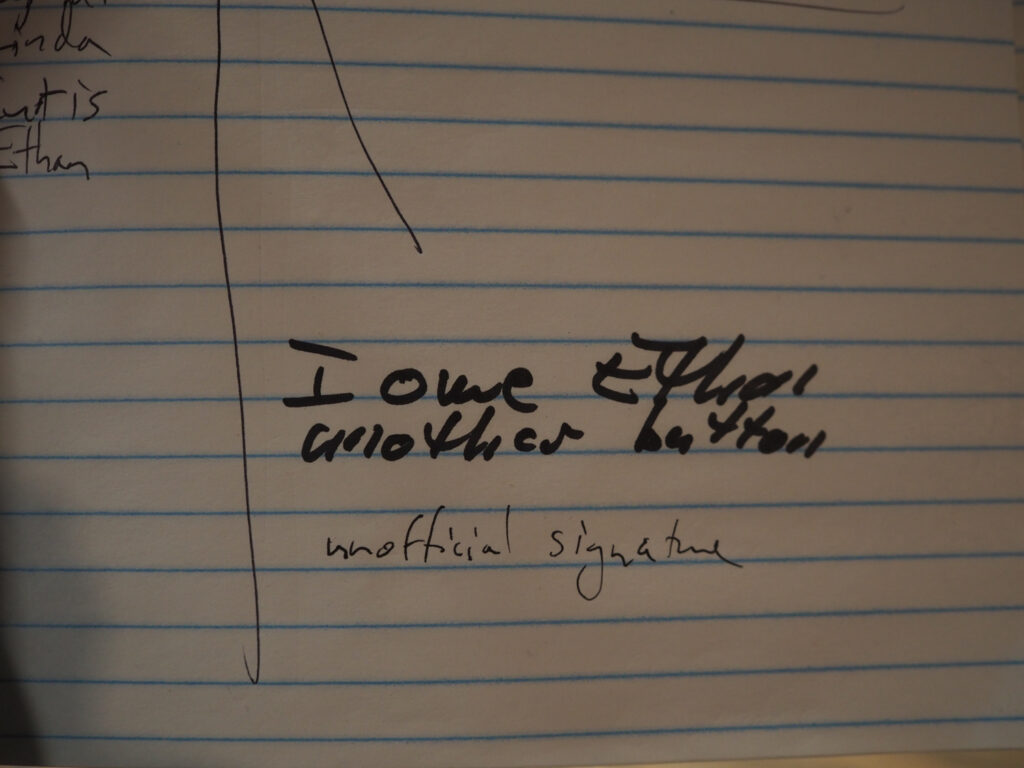 Linda
Ethan
I owe Ethan
another button
unofficial signature